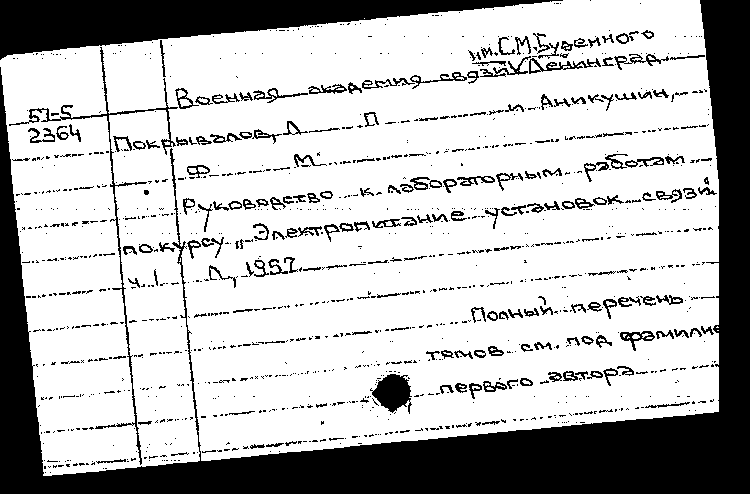 им. С.М.Буденного
Военная академия связи V Ленинград
57-5
2364
Покрывалов, Л П и Аникушин,
Ф М
Руководство к лабораторным работам
по курсу „Электропитание установок связи"
ч. I Л, 1957
Полный перечень
томов см. под фамилие
первого автора